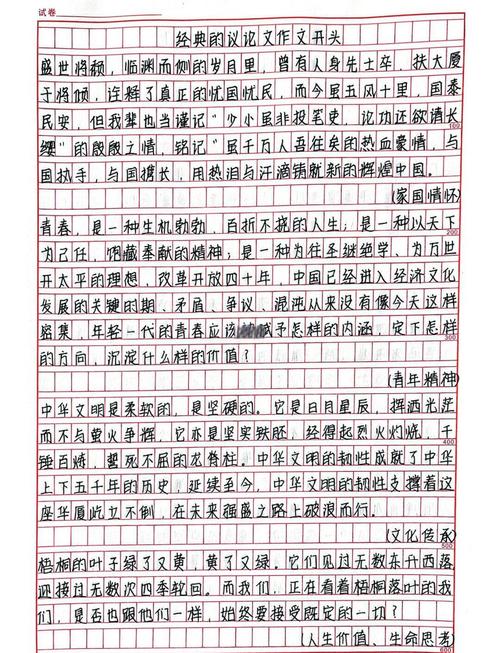 试卷
经典的议论文作文开头
盛世将倾，临渊而侧的岁月里，曾有人身先士卒，扶大厦
于将倾，诠释了真正的忧国忧民，而今虽五风十里，国泰
民安，但我辈也当谨记“少小虽非投笔吏，论功还欲请长
100
缨”的殷殷之情，铭记“虽千万人吾往矣的热血豪情，与
国执手，与国携长，用热泪与汗滴铸就新的辉煌中国。
(家国情怀)
青春，是一种生机勃勃，百折不挠的人生；是一种以天下
200
为己任，饱藏奉献的精神；是一种为往圣继绝学、为万世
开太平的理想，改革开放四十年，中国已经进入经济文化
发展的关键时期、矛盾、争议、混沌从来没有像今天这样
密集，年轻一代的青春应该赋予怎样的内涵，定下怎样
300
的方向，沉淀什么样的价值？
(青年精神)
中华文明是柔软的，是坚硬的。它是日月星辰，挥洒光茫
而不与萤火争辉，它亦是坚实铁胚，经得起烈火灼烧，千
400
锤百炼，誓死不屈的龙脊柱。中华文明的韧性成就了中华
上下五千年的历史，延续至今，中华文明的韧性支撑着这
座华厦屹立不倒，在未来强盛之路上破浪而行。
(文化传承)
500
梧桐的叶子绿了又黄，黄了又绿。它们见过无数东升西落
迎接过无数次四季轮回。而我们，正在看着梧桐落叶的我
们，是否也跟他们一样，始终要接受既定的一切？
(人生价值、生命思考)
600